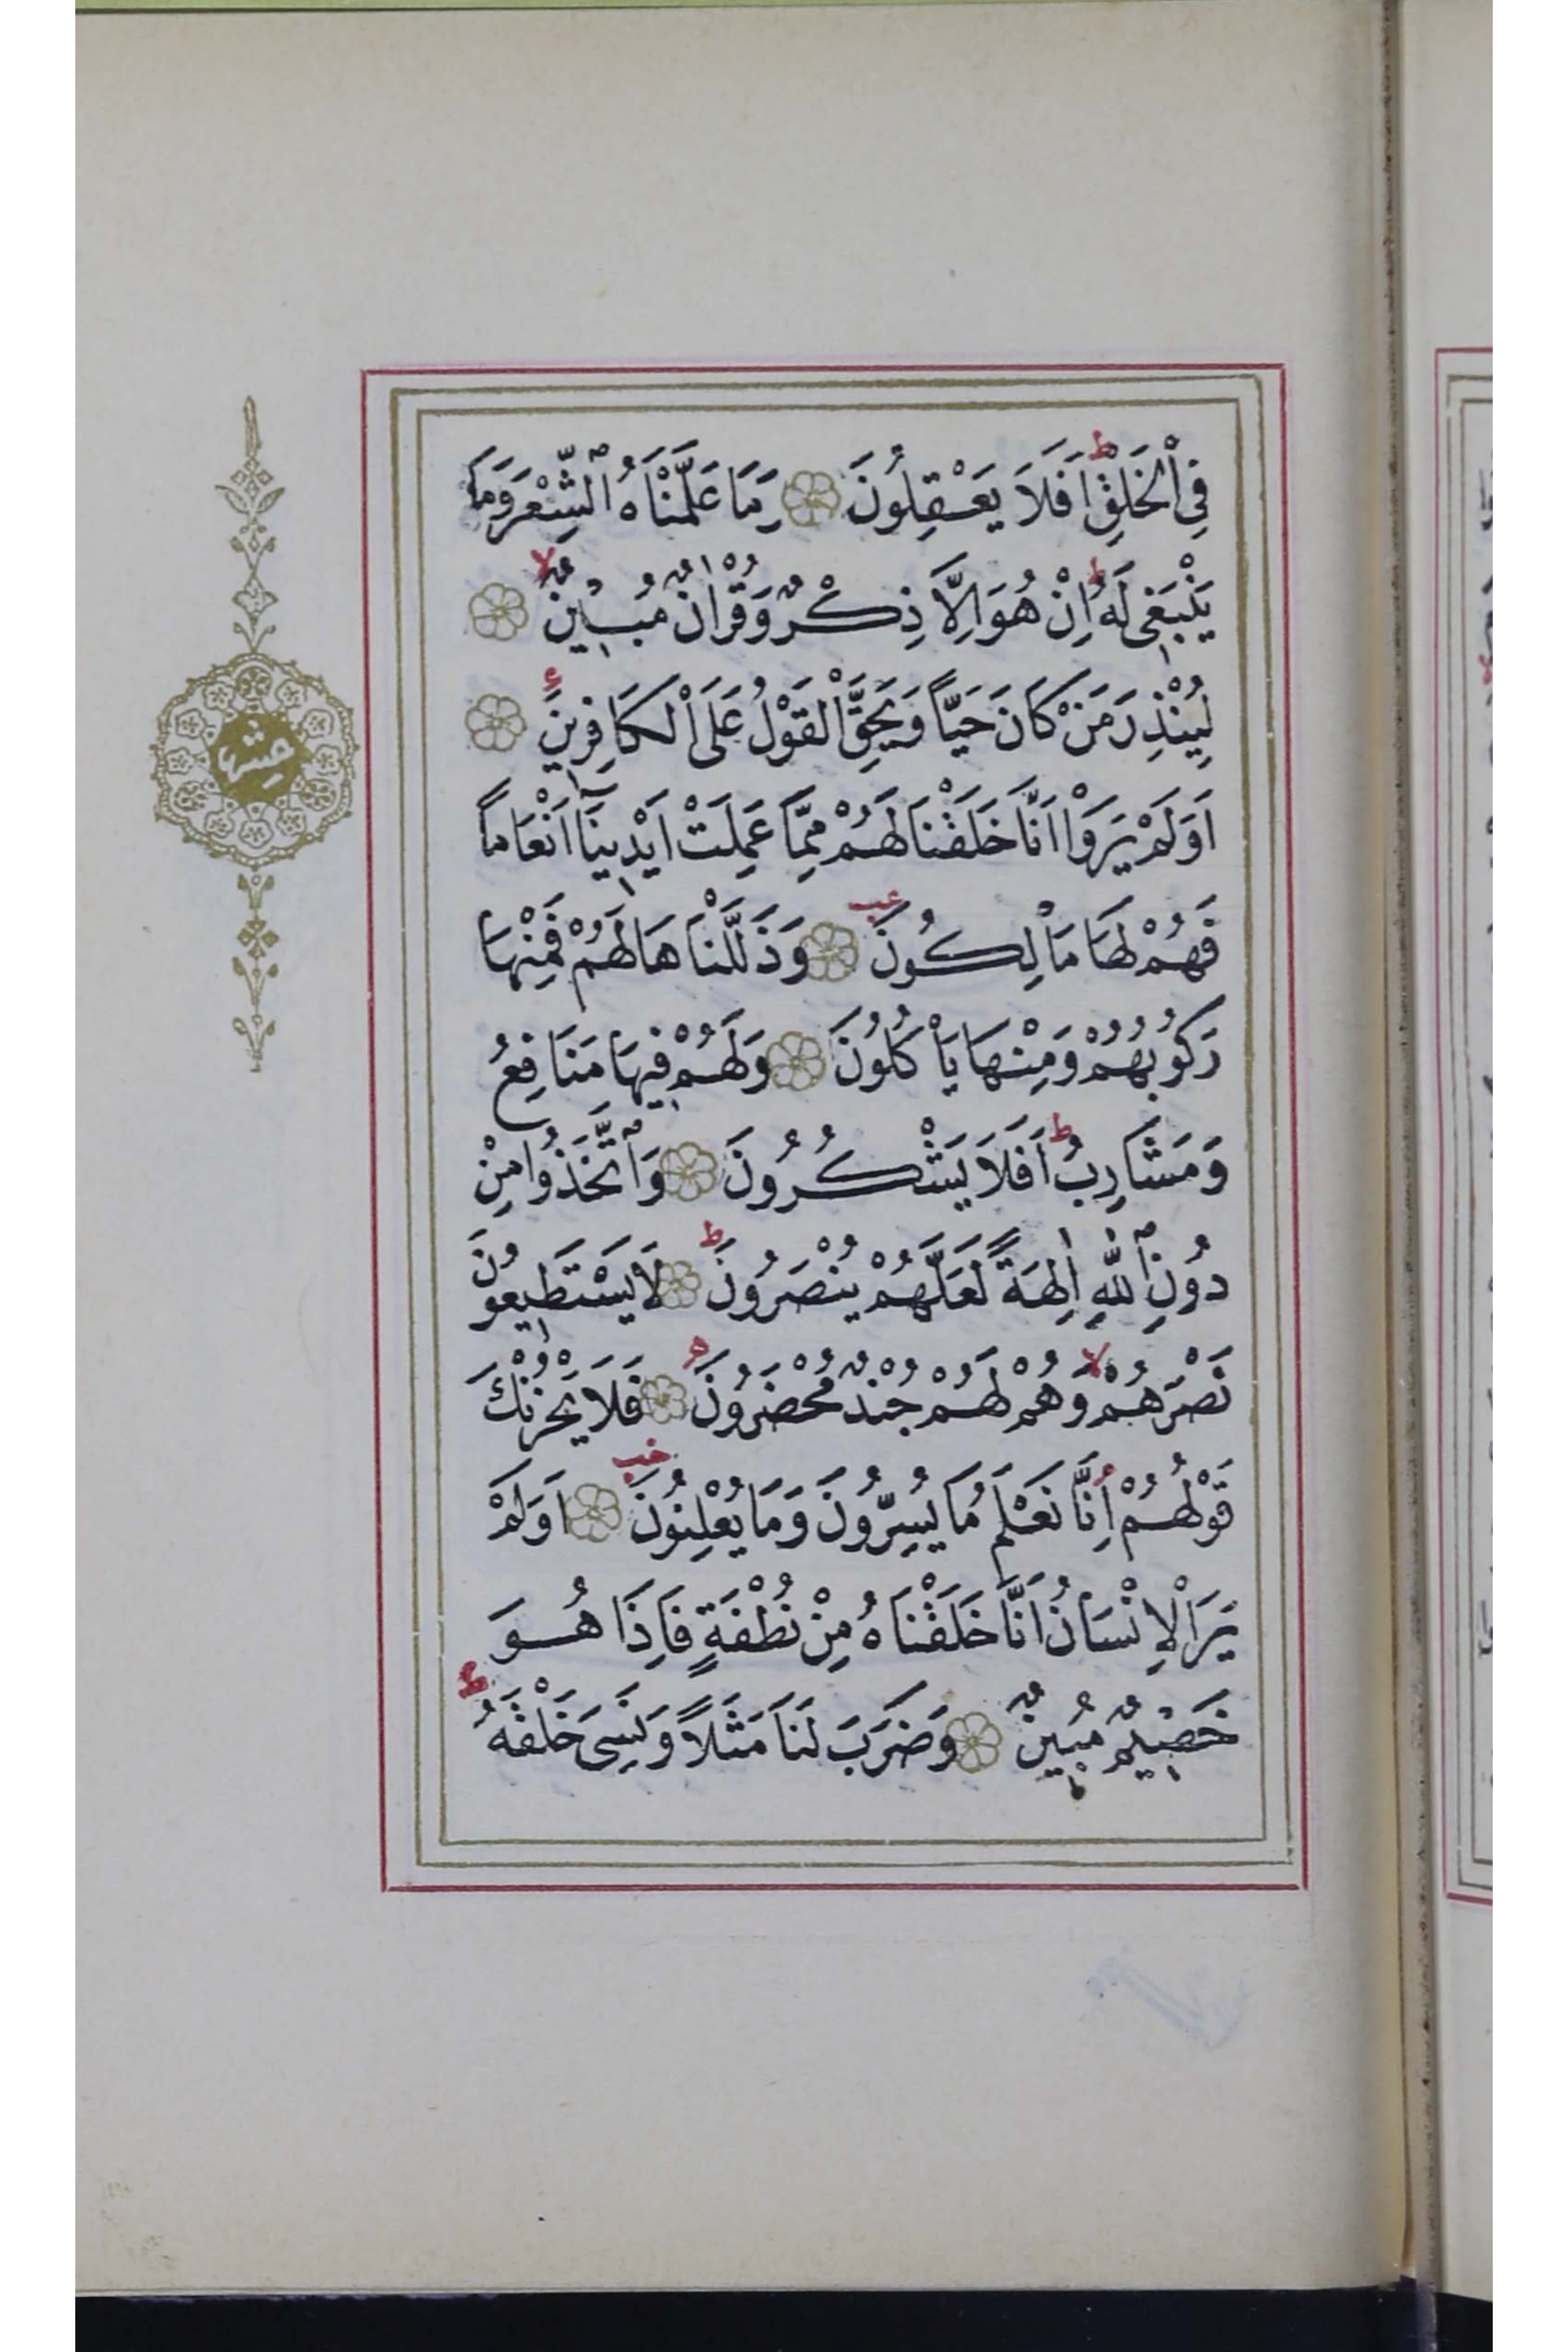 فِى الْخَلْقِۜ اَفَلَا يَعْقِلُونَ وَمَا عَلَّمْنَاهُ الشِّعْرَ وَمَا
يَنْبَغِى لَهُۜ اِنْ هُوَ اِلَّا ذِكْرٌ وَقُرْاٰنٌ مُبٖينٌۙ
لِيُنْذِرَ مَنْ كَانَ حَيًّا وَيَحِقَّ الْقَوْلُ عَلَى الْكَافِرٖينَ
اَوَلَمْ يَرَوْا اَنَّا خَلَقْنَا لَهُمْ مِمَّا عَمِلَتْ اَيْدٖينَا اَنْعَامًا
فَهُمْ لَهَا مَالِكُونَ وَذَلَّلْنَاهَا لَهُمْ فَمِنْهَا
رَكُوبُهُمْ وَمِنْهَا يَاْكُلُونَ وَلَهُمْ فٖيهَا مَنَافِعُ
وَمَشَارِبُۜ اَفَلَا يَشْكُرُونَ وَاتَّخَذُوا مِنْ
دُونِ اللّٰهِ اٰلِهَةً لَعَلَّهُمْ يُنْصَرُونَۜ لَا يَسْتَطٖيعُونَ
نَصْرَهُمْۙ وَهُمْ لَهُمْ جُنْدٌ مُحْضَرُونَ فَلَا يَحْزُنْكَ
قَوْلُهُمْۘ اِنَّا نَعْلَمُ مَا يُسِرُّونَ وَمَا يُعْلِنُونَ اَوَلَمْ
يَرَ الْاِنْسَانُ اَنَّا خَلَقْنَاهُ مِنْ نُطْفَةٍ فَاِذَا هُوَ
خَصٖيمٌ مُبٖينٌ وَضَرَبَ لَنَا مَثَلًا وَنَسِىَ خَلْقَهُۜ